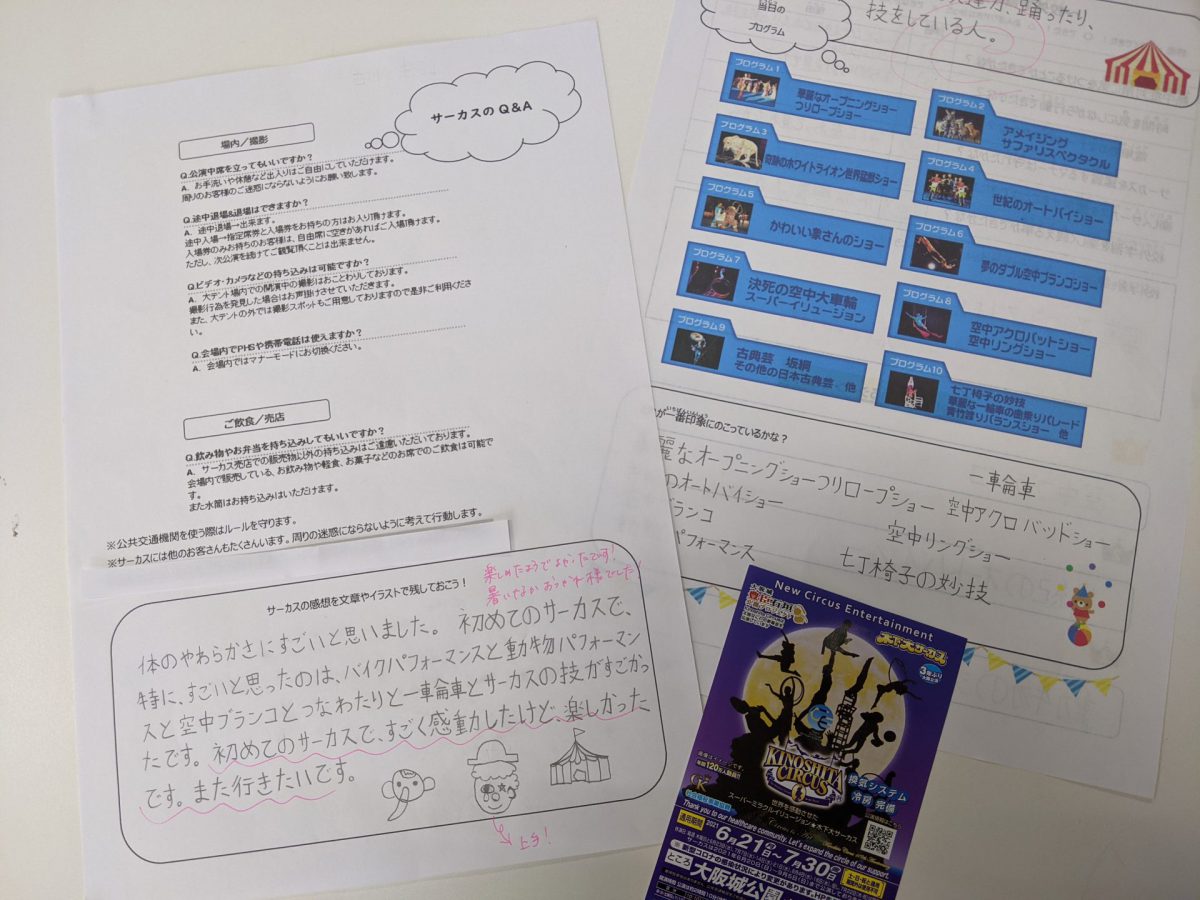 サーカスのQ&A
場内／撮影
Q.公演中席を立ってもいいですか？
A. お手洗いや休憩など出入りはご自由にしていただけます。
周りのお客様のご迷惑にならないようにお願い致します。
Q.途中退場&退場はできますか？
A. 途中退場→出来ます。
途中入場→指定席券と入場券をお持ちの方はお入り頂けます。
入場券のみお持ちのお客様は、自由席に空きがあればご入場頂けます。
ただし、次公演を続けてご観覧頂くことは出来ません。
Q.ビデオ・カメラなどの持ち込みは可能ですか？
A. 大テント場内での開演中の撮影はおことわりしております。
撮影行為を発見した場合はお声掛けさせていただきます。
また、大テントの外では撮影スポットもご用意しておりますので是非ご利用くださ
い。
Q.会場内でPHSや携帯電話は使えますか？
A. 会場内ではマナーモードにお切換ください。
ご飲食／売店
Q.飲み物やお弁当を持ち込みしてもいいですか？
A. サーカス売店での販売物以外の持ち込みはご遠慮いただいております。
会場内で販売している、お飲み物や軽食、お菓子などのお席でのご飲食は可能で
す。
また水筒はお持ち込みはいただけます。
※公共交通機関を使う際はルールを守ります。
※サーカスには他のお客さんもたくさんいます。周りの迷惑にならないように考えて行動します。
サーカスの感想を文章やイラストで残しておこう！
楽しめたようでよかったです！
暑いなかおつかれ様でした！
体のやわらかさにすごいと思いました。 初めてのサーカスで、
特に、すごいと思ったのは、バイクパフォーマンスと動物パフォーマン
スと空中ブランコとつなわたりと一輪車とサーカスの技がすごかっ
たです。初めてのサーカスで、すごく感動したけど、楽しかった
です。また行きたいです。
上手！
当日の
プログラム
踊ったり、
技をしている人。
プログラム1
華麗なオープニングショー
つりロープショー
プログラム2
アメイジング
サファリスペクタクル
プログラム3
奇跡のホワイトライオン世界猛獣ショー
プログラム4
世紀のオートバイショー
プログラム5
かわいい象さんのショー
プログラム6
夢のダブル空中ブランコショー
プログラム7
決死の空中大車輪
スーパーイリュージョン
プログラム8
空中アクロバットショー
空中リングショー
プログラム9
古典芸 坂綱
その他の日本古典芸・他
プログラム10
七丁椅子の妙技
華麗な一輪車の曲乗りパレード
青竹登りバランスショー 他
が一番印象にのこっているかな？
いちばんいんしょう
なオープニングショーつりロープショー
一輪車
のオートバイショー
空中アクロバッドショー
ランコ
空中リングショー
パフォーマンス
七丁椅子の妙技
New Circus Entertainment
木下大サーカス
3年ぶり
KINOSHITA
CIRCUS
年間120万人動員!!
換気システム
冷房 完備
世界を感動させた
スーパーミラクルイリュージョン★木下大サーカス
Thank you to our healthcare community. Let's expand the circle of our support.
適用期間
2021
6月21日〜7月30日
ところ
大阪城公